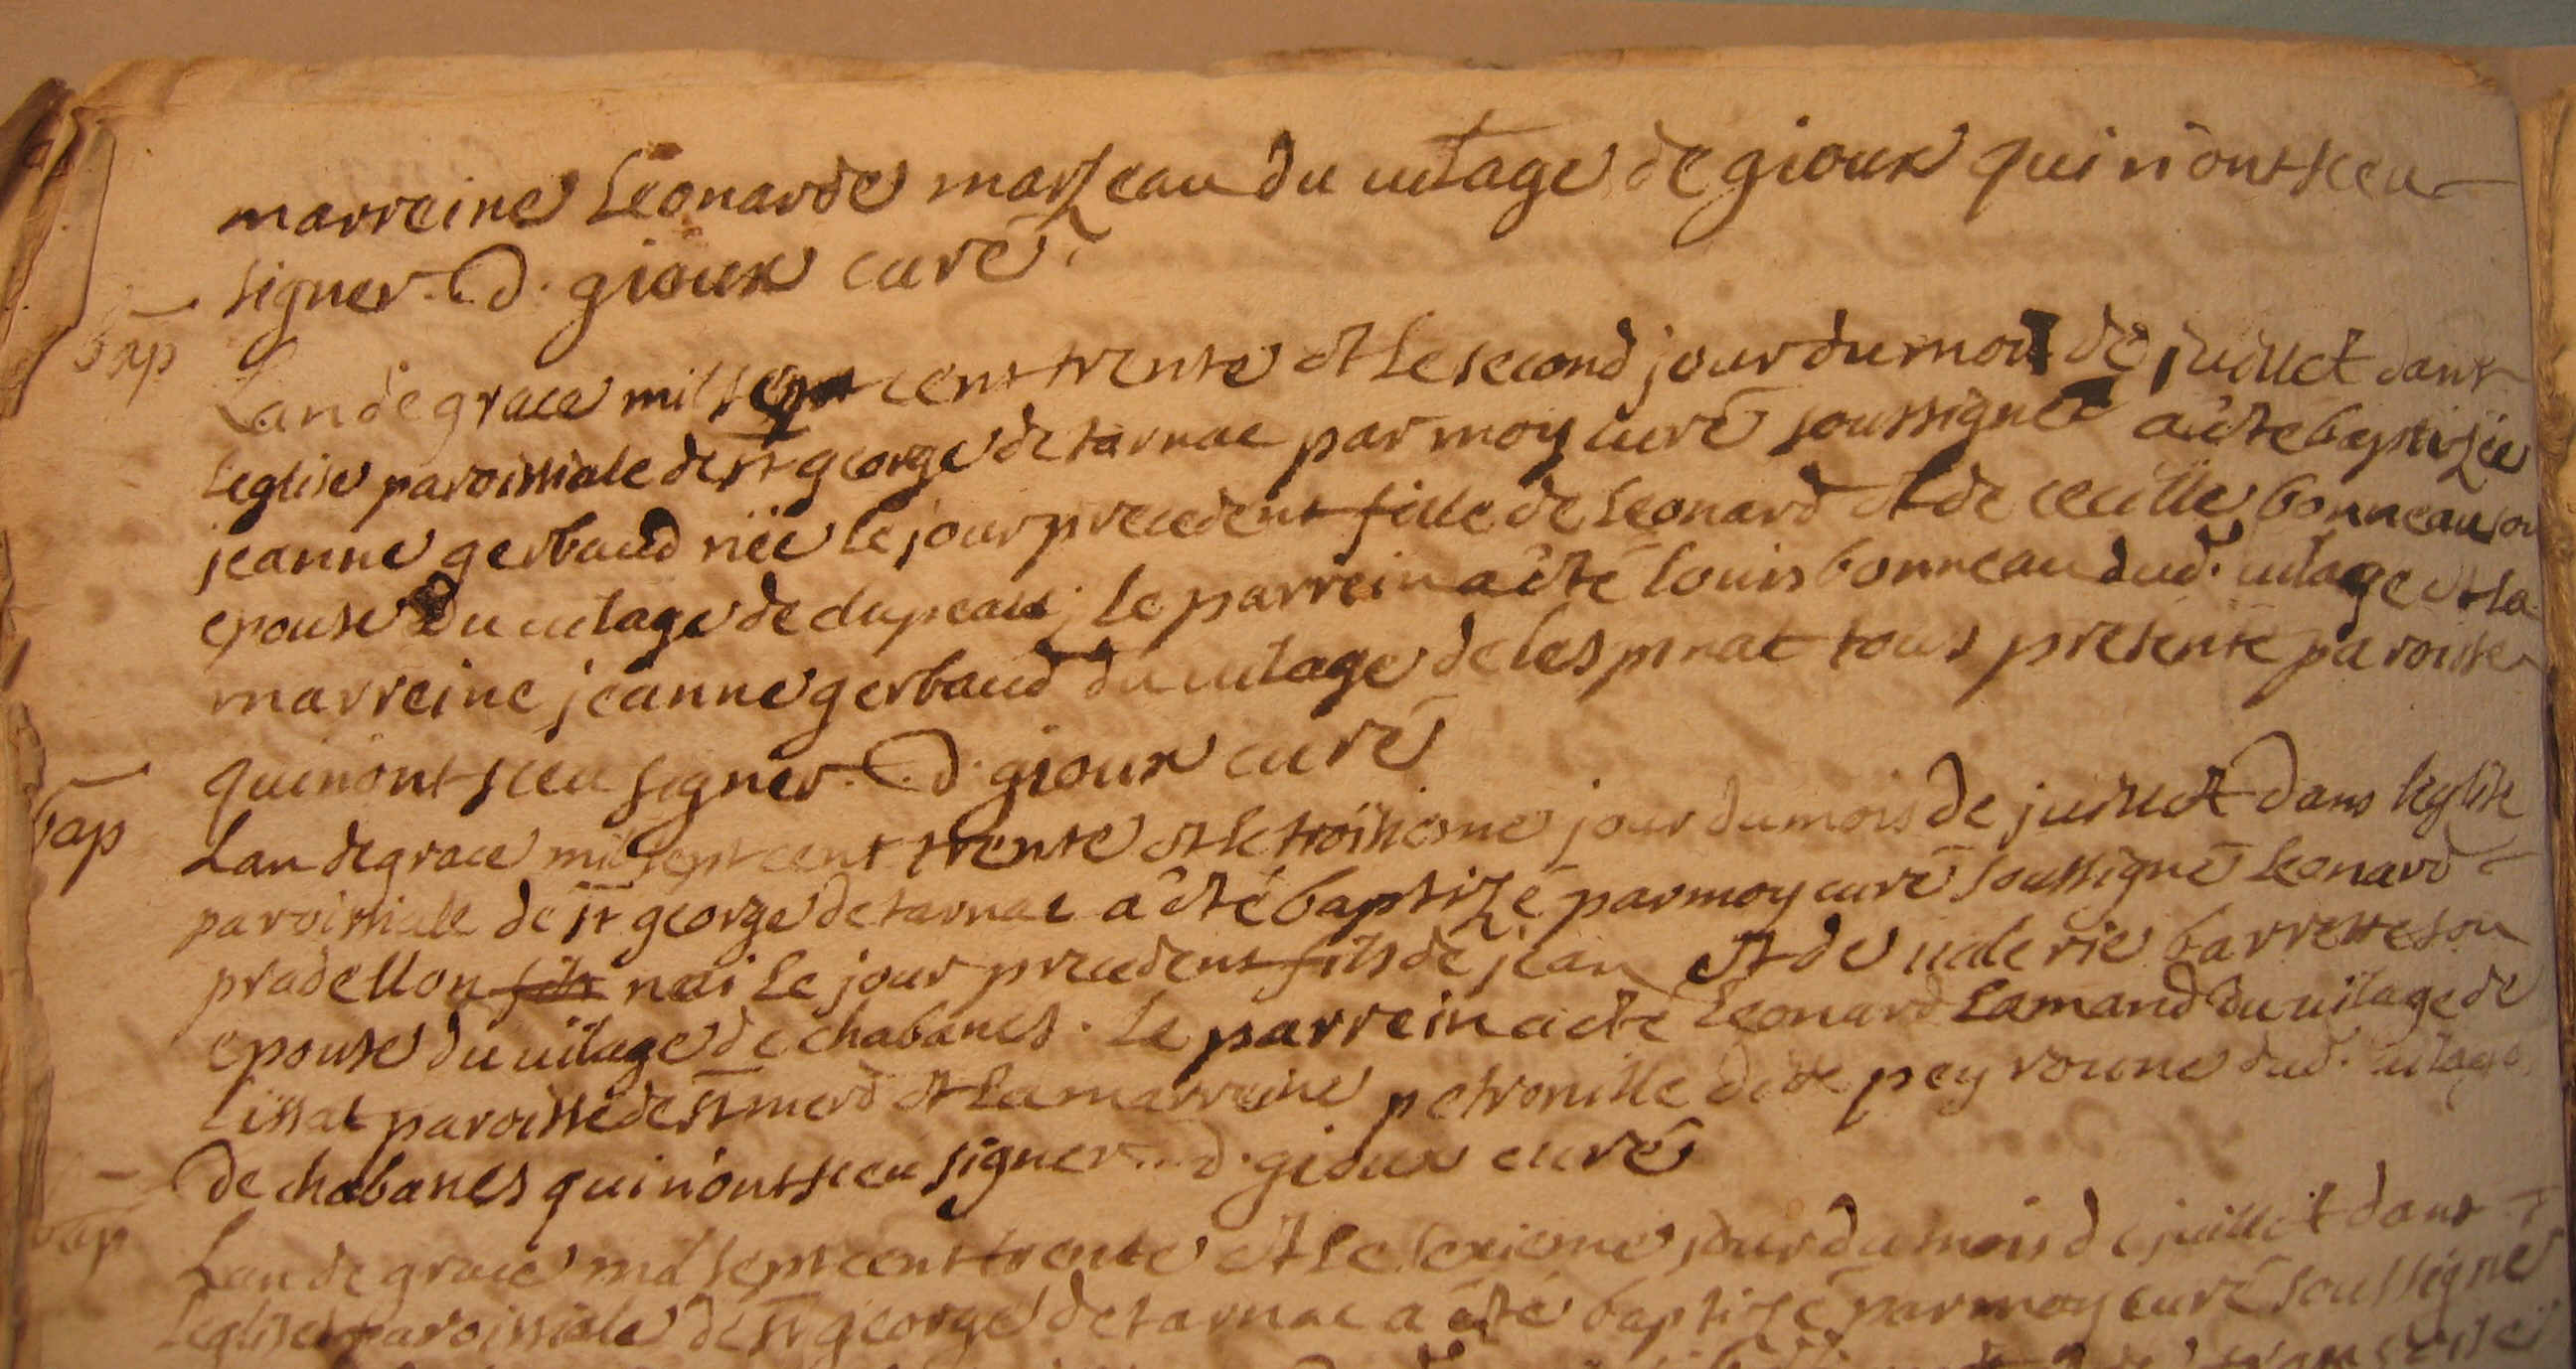 marreine Leonarde marzeau du vilage de gioux qui n'ont sceu
signer. d. gioux curé
bap
Lan de grace mil sept cent trente et le second jour du mois de juillet dans
leglise paroissiale de st george de tarnac par moy curé soussigné a esté baptizée
jeanne gerbaud née le jour precedent fille de Leonard et de cecille bonneau son
epouse du vilage de clupeau; le parrein a été louis bonneau dud. vilage et la
marreine jeanne gerbaud du vilage de lespinat tous presente paroisse
qui n'ont sceu signer. d. gioux curé
bap
Lan de grace mil sept cent trente et le troisieme jour du mois de juillet dans leglise
paroissialle de st george de tarnac a été baptizé par moy curé soussigné Leonard
pradellon fils nai le jour precedent fils de jean et de valerie barrette son
epouse du vilage de chabanes. Le parrein a été Leonard Lamand du vilage de
Lissat paroisse de st merd et la marreine petronille dite peyroune dud. vilage
de chabanes qui n'ont sceu signer. d. gioux curé
bap
Lan de grace mil sept cent trente et le sexieme jour du mois de juillet dans
leglise paroissiale de st george de tarnac a été baptizé par moy curé soussigné